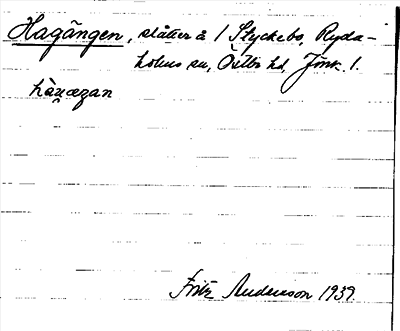 Hagängen, slåtter å 1 Styckebo, Ryda-
holms sn, Östbo hd, Jönk. l.
hàɡæŋan
Fritz Andersson 1939.